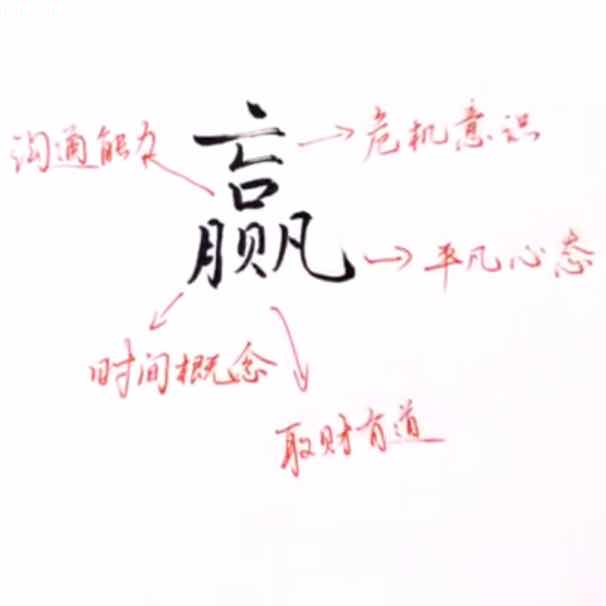 沟通能力
赢
危机意识
平凡心态
时间概念
取财有道